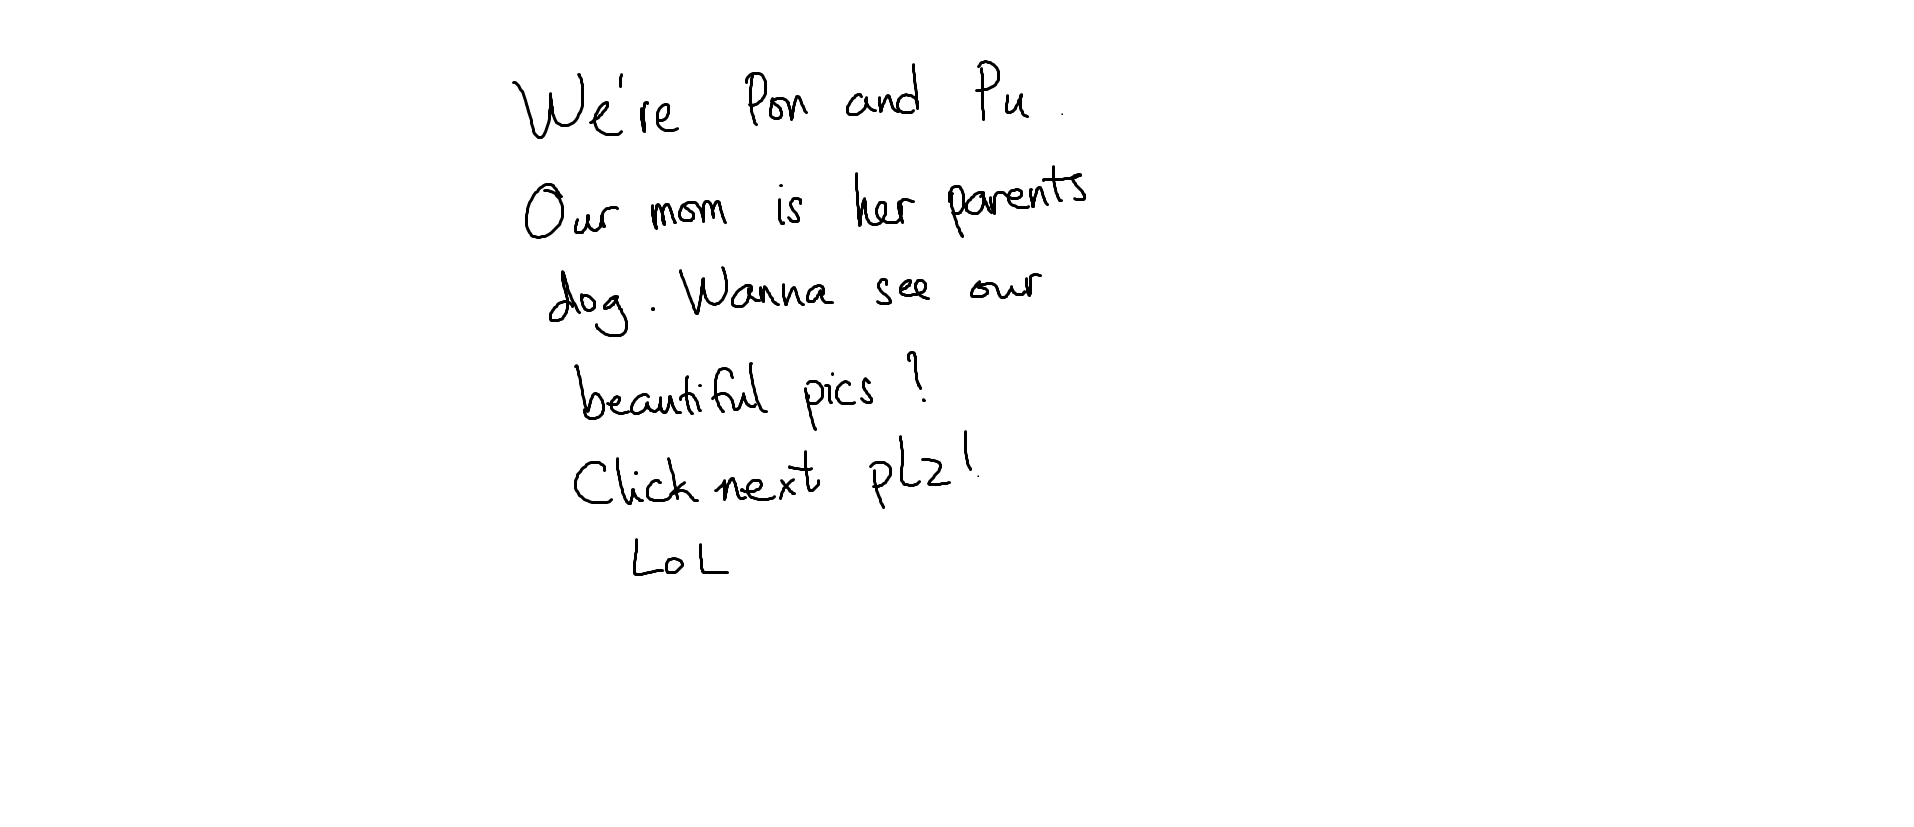 We're Pon and Pu.
Our mom is her parents
dog. Wanna see our
beautiful pics?
Click next plz!
LoL